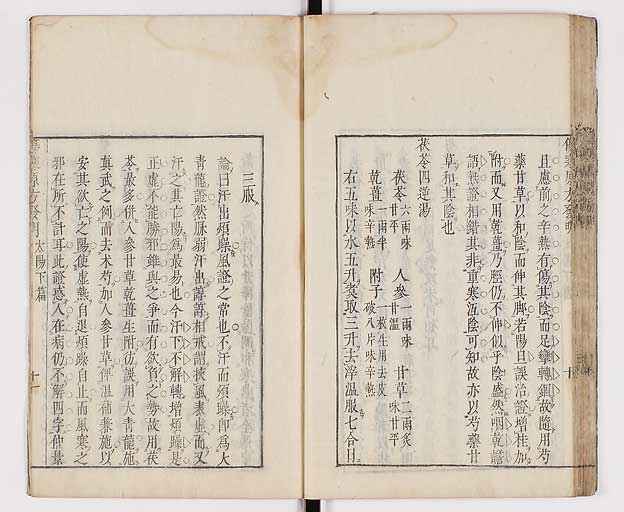 且慮前之辛熱有傷其陰而足攣轉錮故隨用芍
藥甘草以和陰而伸其脚若陽旦誤治證增桂加
附而又用乾薑乃脛仍不伸似乎陰盛然咽乾譫
語無證相錯其非重寒沍陰可知故亦以芍藥甘
草和其陰也
茯苓四逆湯
茯苓 六兩味甘平 人參 一兩味甘溫 甘草 二兩炙味甘平
乾薑 一兩半味辛熱 附子 一枚生用去皮破八片味辛熱
右五味以水五升煑取三升去滓溫服七合日
三服
論曰汗出煩躁風證之常也不汗而煩躁卽爲大
靑龍證然脈弱汗出諄諄相戒謂挾風表虛而又
汗之其亡陽爲最易也今汗下不解轉增煩躁是
正虛不能勝邪雖與之爭而有欲負之勢故用茯
苓最多併入參甘草乾薑生附仿誤用大靑龍施
眞武之例而去术芍加人參甘草俾溫補兼施以
安其欲亡之陽使虛熱自退煩躁自止而風寒之
邪在所不計耳此證惑人在病仍不解四字仲景
太陽下篇
十一
十